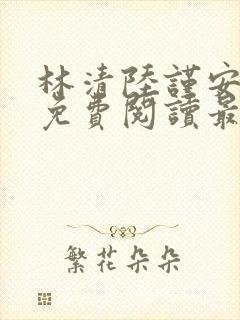 林清陸謹安
免費閱讀最
繁花朵朵